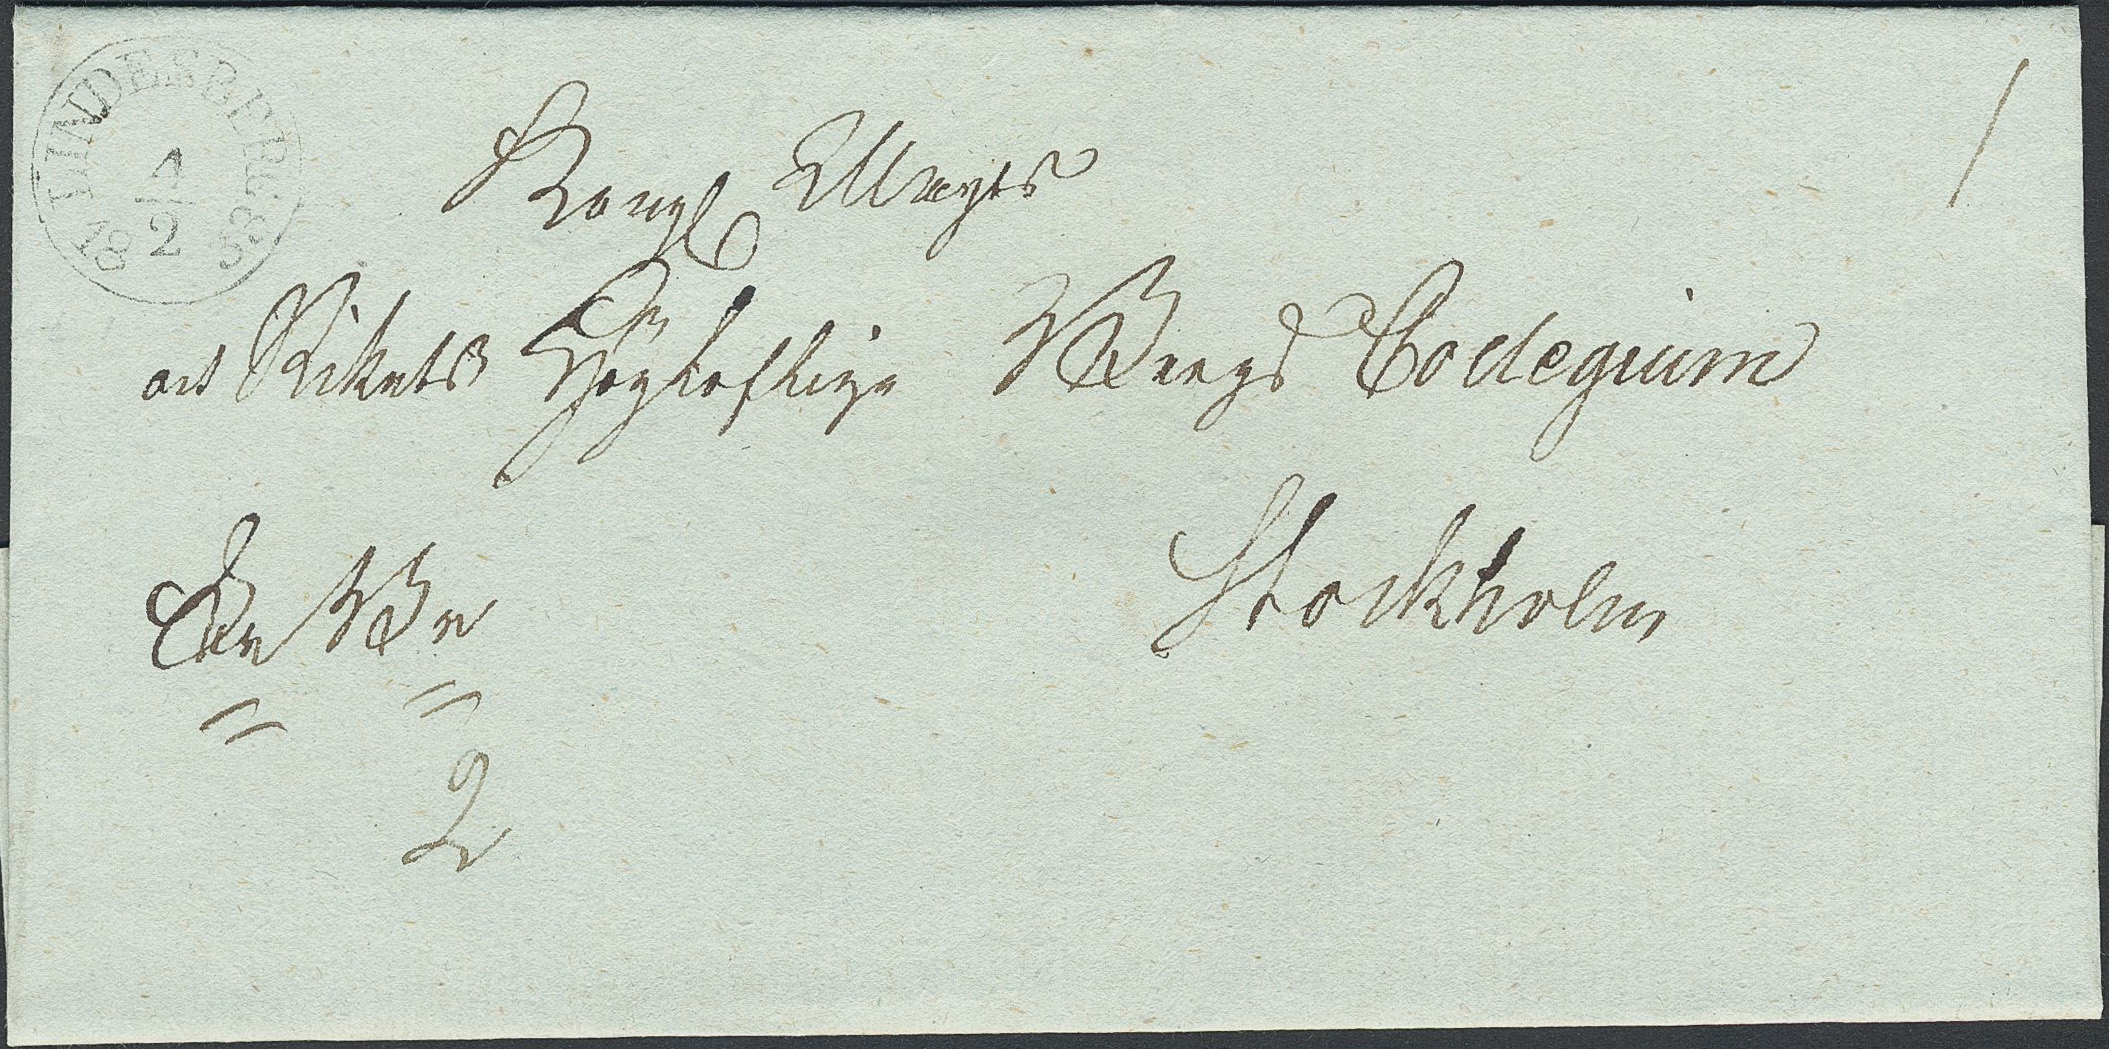 LINDESBERG
4
2
18 35
Kongl Mayts
och Rikets Högloflige Bergs Collegium
Stockholm
2